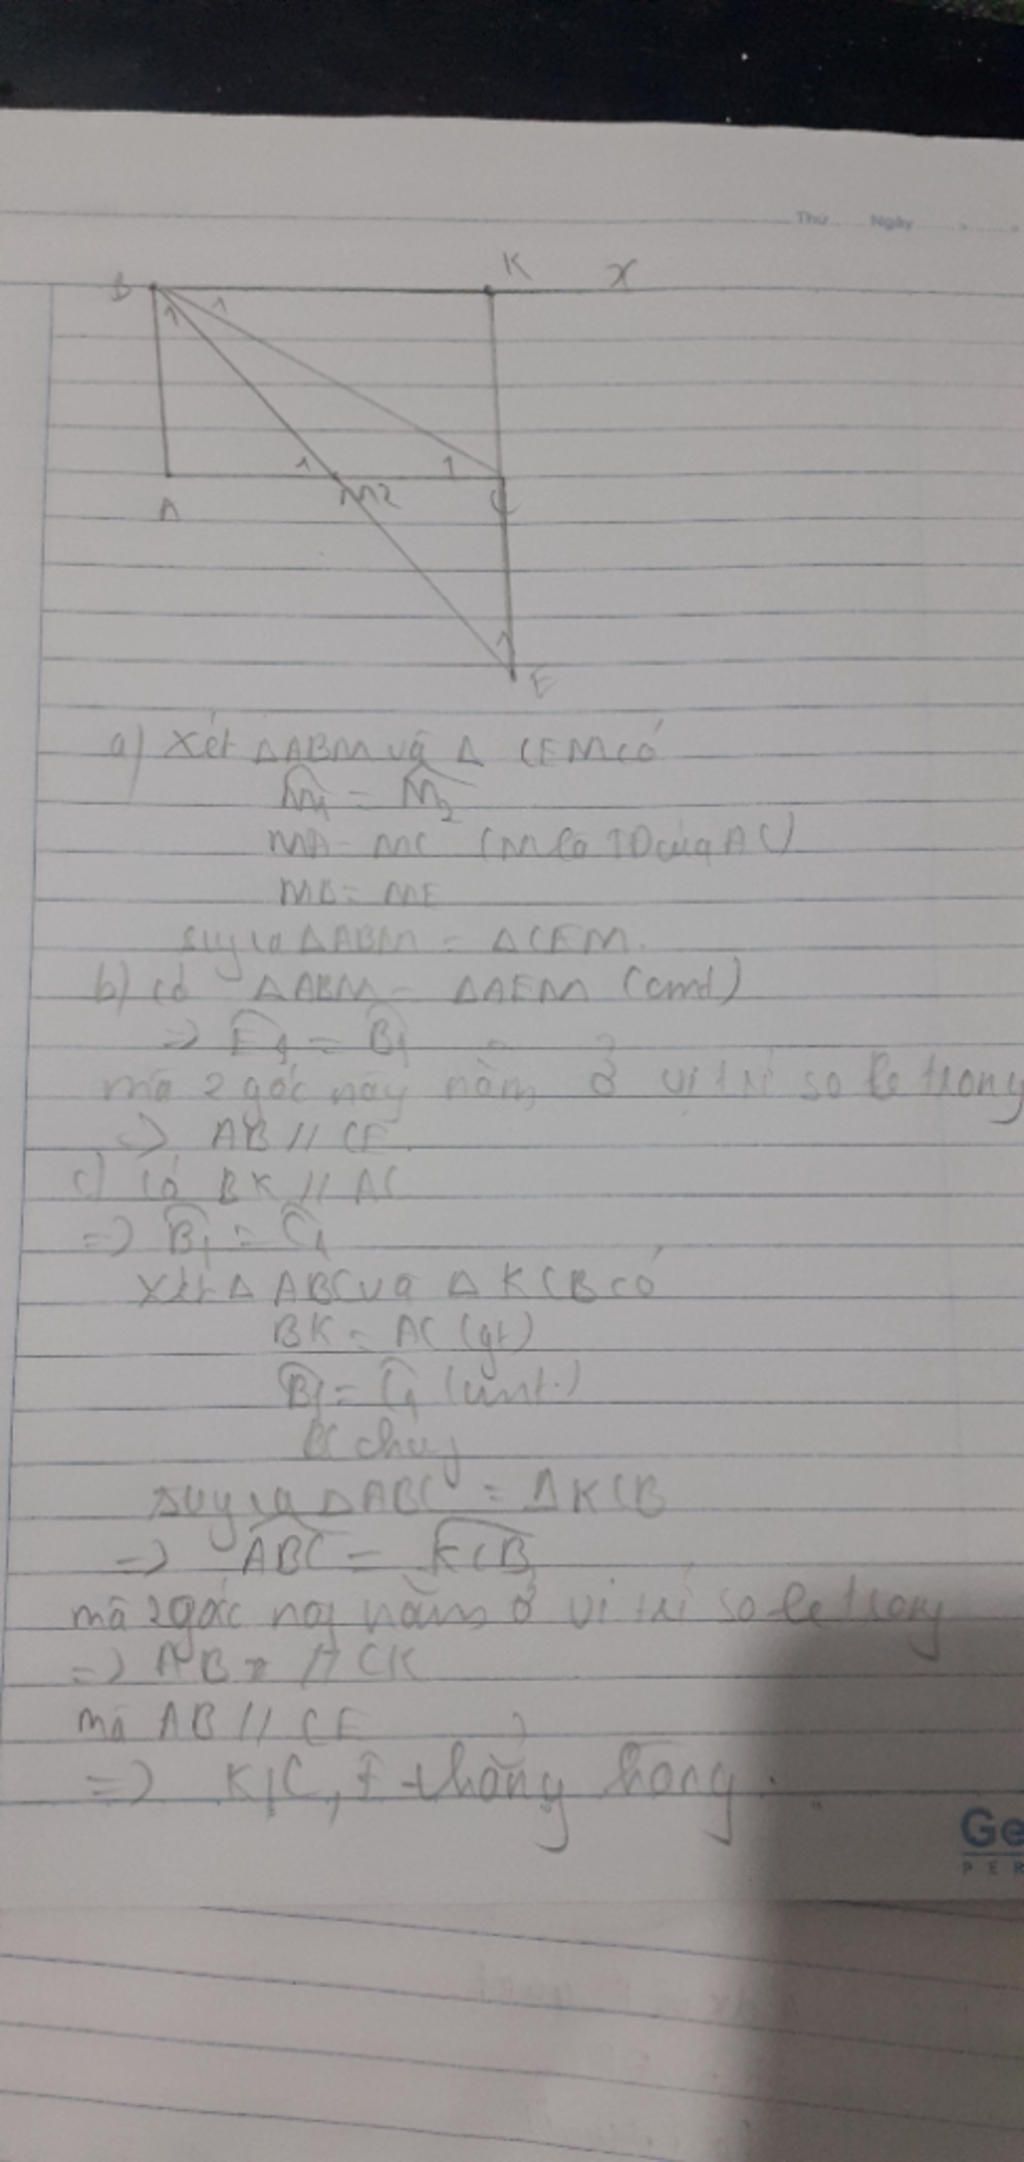 Thứ Ngày
B K x
1 1
1 1
A M 2 C
1
E
a) Xét ΔABM và Δ CEM có
M̂1 = M̂2
MA = MC (M là TĐ của AC)
MB = ME
suy ra ΔABM = ΔCEM.
b) Có ΔABM = ΔAEM (cmt)
=> Ê1 = B̂1
mà 2 góc này nằm ở vị trí so le trong
=> AB // CE.
c) Có BK // AC
=> B̂1 = Ĉ1
Xét Δ ABC và Δ KCB có
BK = AC (gt)
B̂1 = Ĉ1 (cmt.)
BC chung
suy ra ΔABC = ΔKCB
=> ABC = KCB
mà 2 góc này nằm ở vị trí so le trong
=> AB // CK
mà AB // CE
=> K, C, E thẳng hàng.
Ge
PER